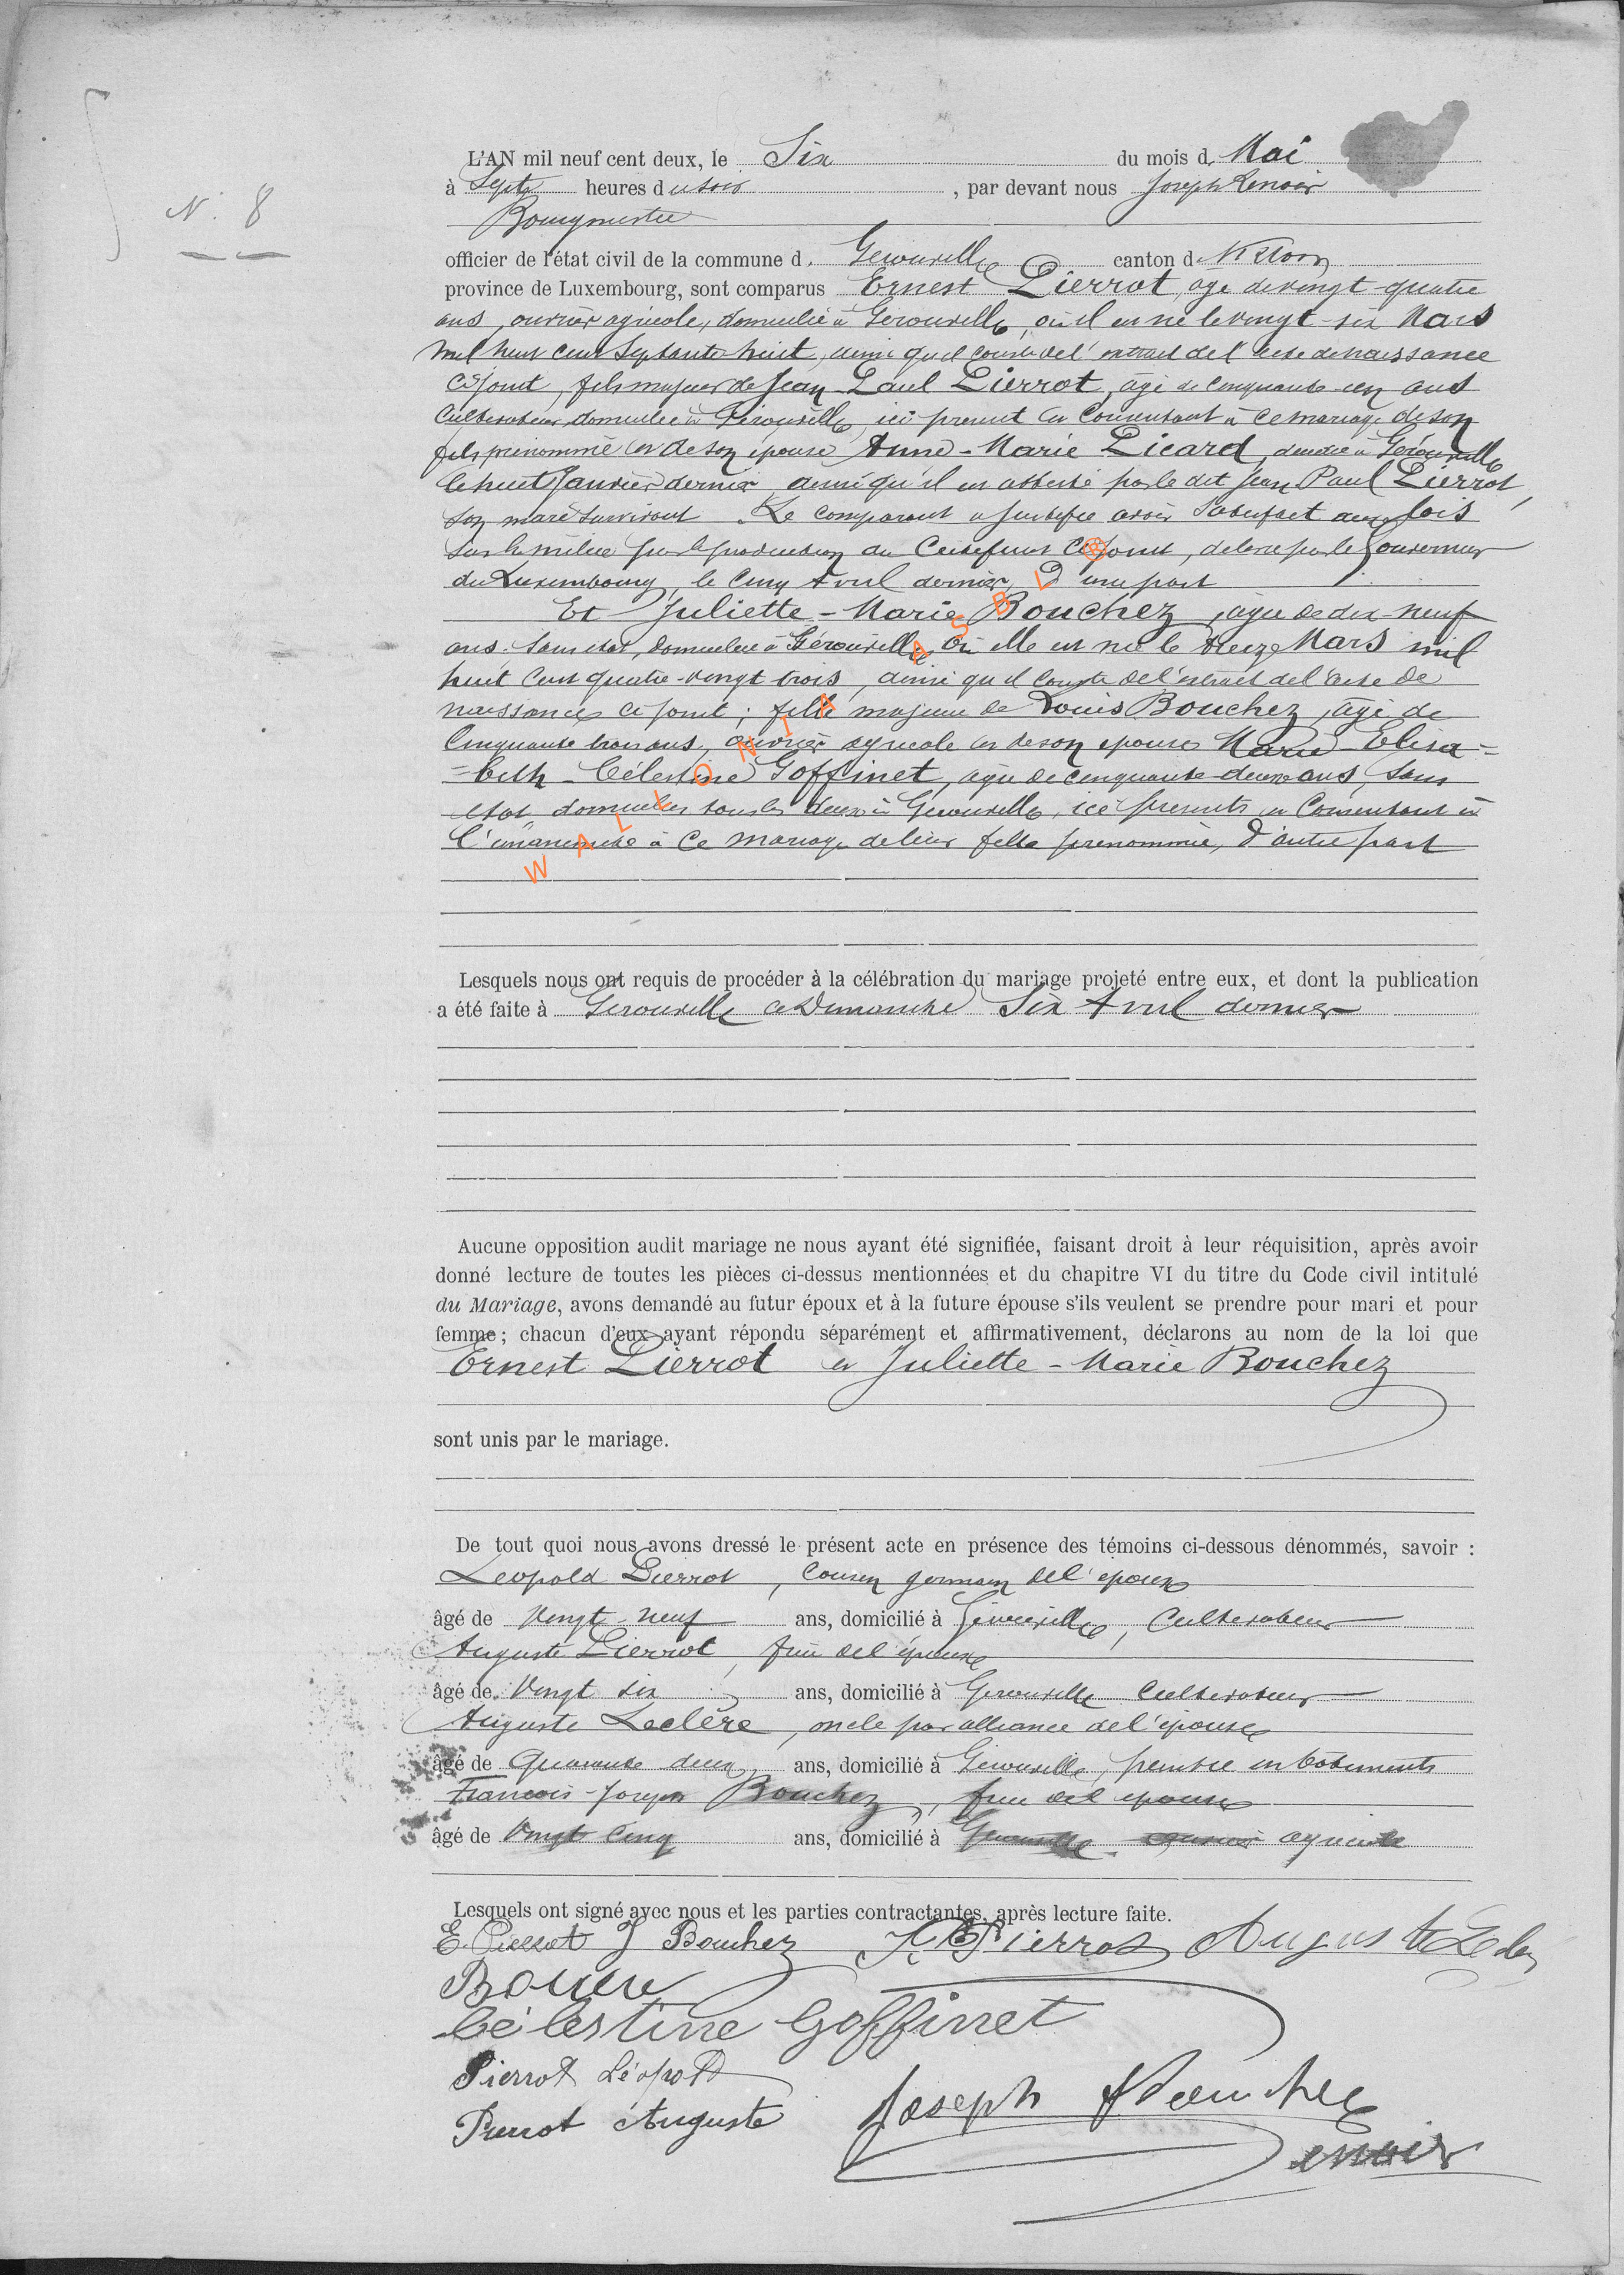 N. 8
L'AN mil neuf cent deux, le Six du mois d. Mai
à Sept heures du soir, par devant nous Joseph Renoir
Bourgmestre
officier de l'état civil de la commune d. Gerouville canton d
province de Luxembourg, sont comparus Ernest Pierrot, âgé de vingt-quatre
ans, ouvrier agricole, domicilié à Gerouville, où il est né le vingt-six Mars
mil huit cent septante huit, ainsi qu'il conste de l'extrait de l'acte de naissance
ci-joint, fils majeur de Jean-Paul Pierrot, âgé de cinquante-un ans
cultivateur, domicilié à Gérouville, ici présent et consentant à ce mariage de son
fils prénommé et de son épouse Anne-Marie Picard, décédée à Gérouville
le huit Janvier dernier, ainsi qu'il est attesté par le dit Jean Paul Pierrot,
son mari survivant. Le comparant a justifié avoir satisfait aux lois
sur la milice par la production du certificat ci-joint, délivré par le Gouverneur
du Luxembourg, le cinq Avril dernier, d'une part
Et Juliette-Marie Bouchez, âgée de dix-neuf
ans, sans état, domiciliée à Gérouville, où elle est née le treize Mars mil
huit cent quatre-vingt trois, ainsi qu'il conste de l'extrait de l'acte de
naissance ci-joint; fille majeure de Louis Bouchez, âgé de
cinquante trois ans, ouvrier agricole et de son épouse Marie-Elisa=
=beth-Célestine Goffinet, âgée de cinquante-deux ans, sans
état, domiciliés tous les deux à Gerouville, ici présents et consentant à
à ce mariage de leur fille prénommée, d'autre part
WALLONIA ASBL
Lesquels nous ont requis de procéder à la célébration du mariage projeté entre eux, et dont la publication
a été faite à Gerouville ce Dimanche Six Avril dernier
Aucune opposition audit mariage ne nous ayant été signifiée, faisant droit à leur réquisition, après avoir
donné lecture de toutes les pièces ci-dessus mentionnées et du chapitre VI du titre du Code civil intitulé
du Mariage, avons demandé au futur époux et à la future épouse s'ils veulent se prendre pour mari et pour
femme; chacun d'eux ayant répondu séparément et affirmativement, déclarons au nom de la loi que
Ernest Pierrot et Juliette-Marie Bouchez
sont unis par le mariage.
De tout quoi nous avons dressé le présent acte en présence des témoins ci-dessous dénommés, savoir :
Leopold Pierrot, cousin germain de l'époux
âgé de vingt-neuf ans, domicilié à Gérouville, cultivateur
Auguste Pierrot, frère de l'époux
âgé de Vingt six ans, domicilié à Gerouville cultivateur
Auguste Leclère, oncle par alliance de l'épouse
âgé de Quarante deux ans, domicilié à Gerouville, peintre en bâtiments
François-Joseph Bouchez, frère de l'épouse
âgé de Vingt cinq ans, domicilié à Gerouville ouvrier agricole
Lesquels ont signé avec nous et les parties contractantes, après lecture faite.
E. Pierrot J Bouchez Pierrot Auguste
Célestine Goffinet
Pierrot Léopold
Pierrot Auguste Joseph Bouchez